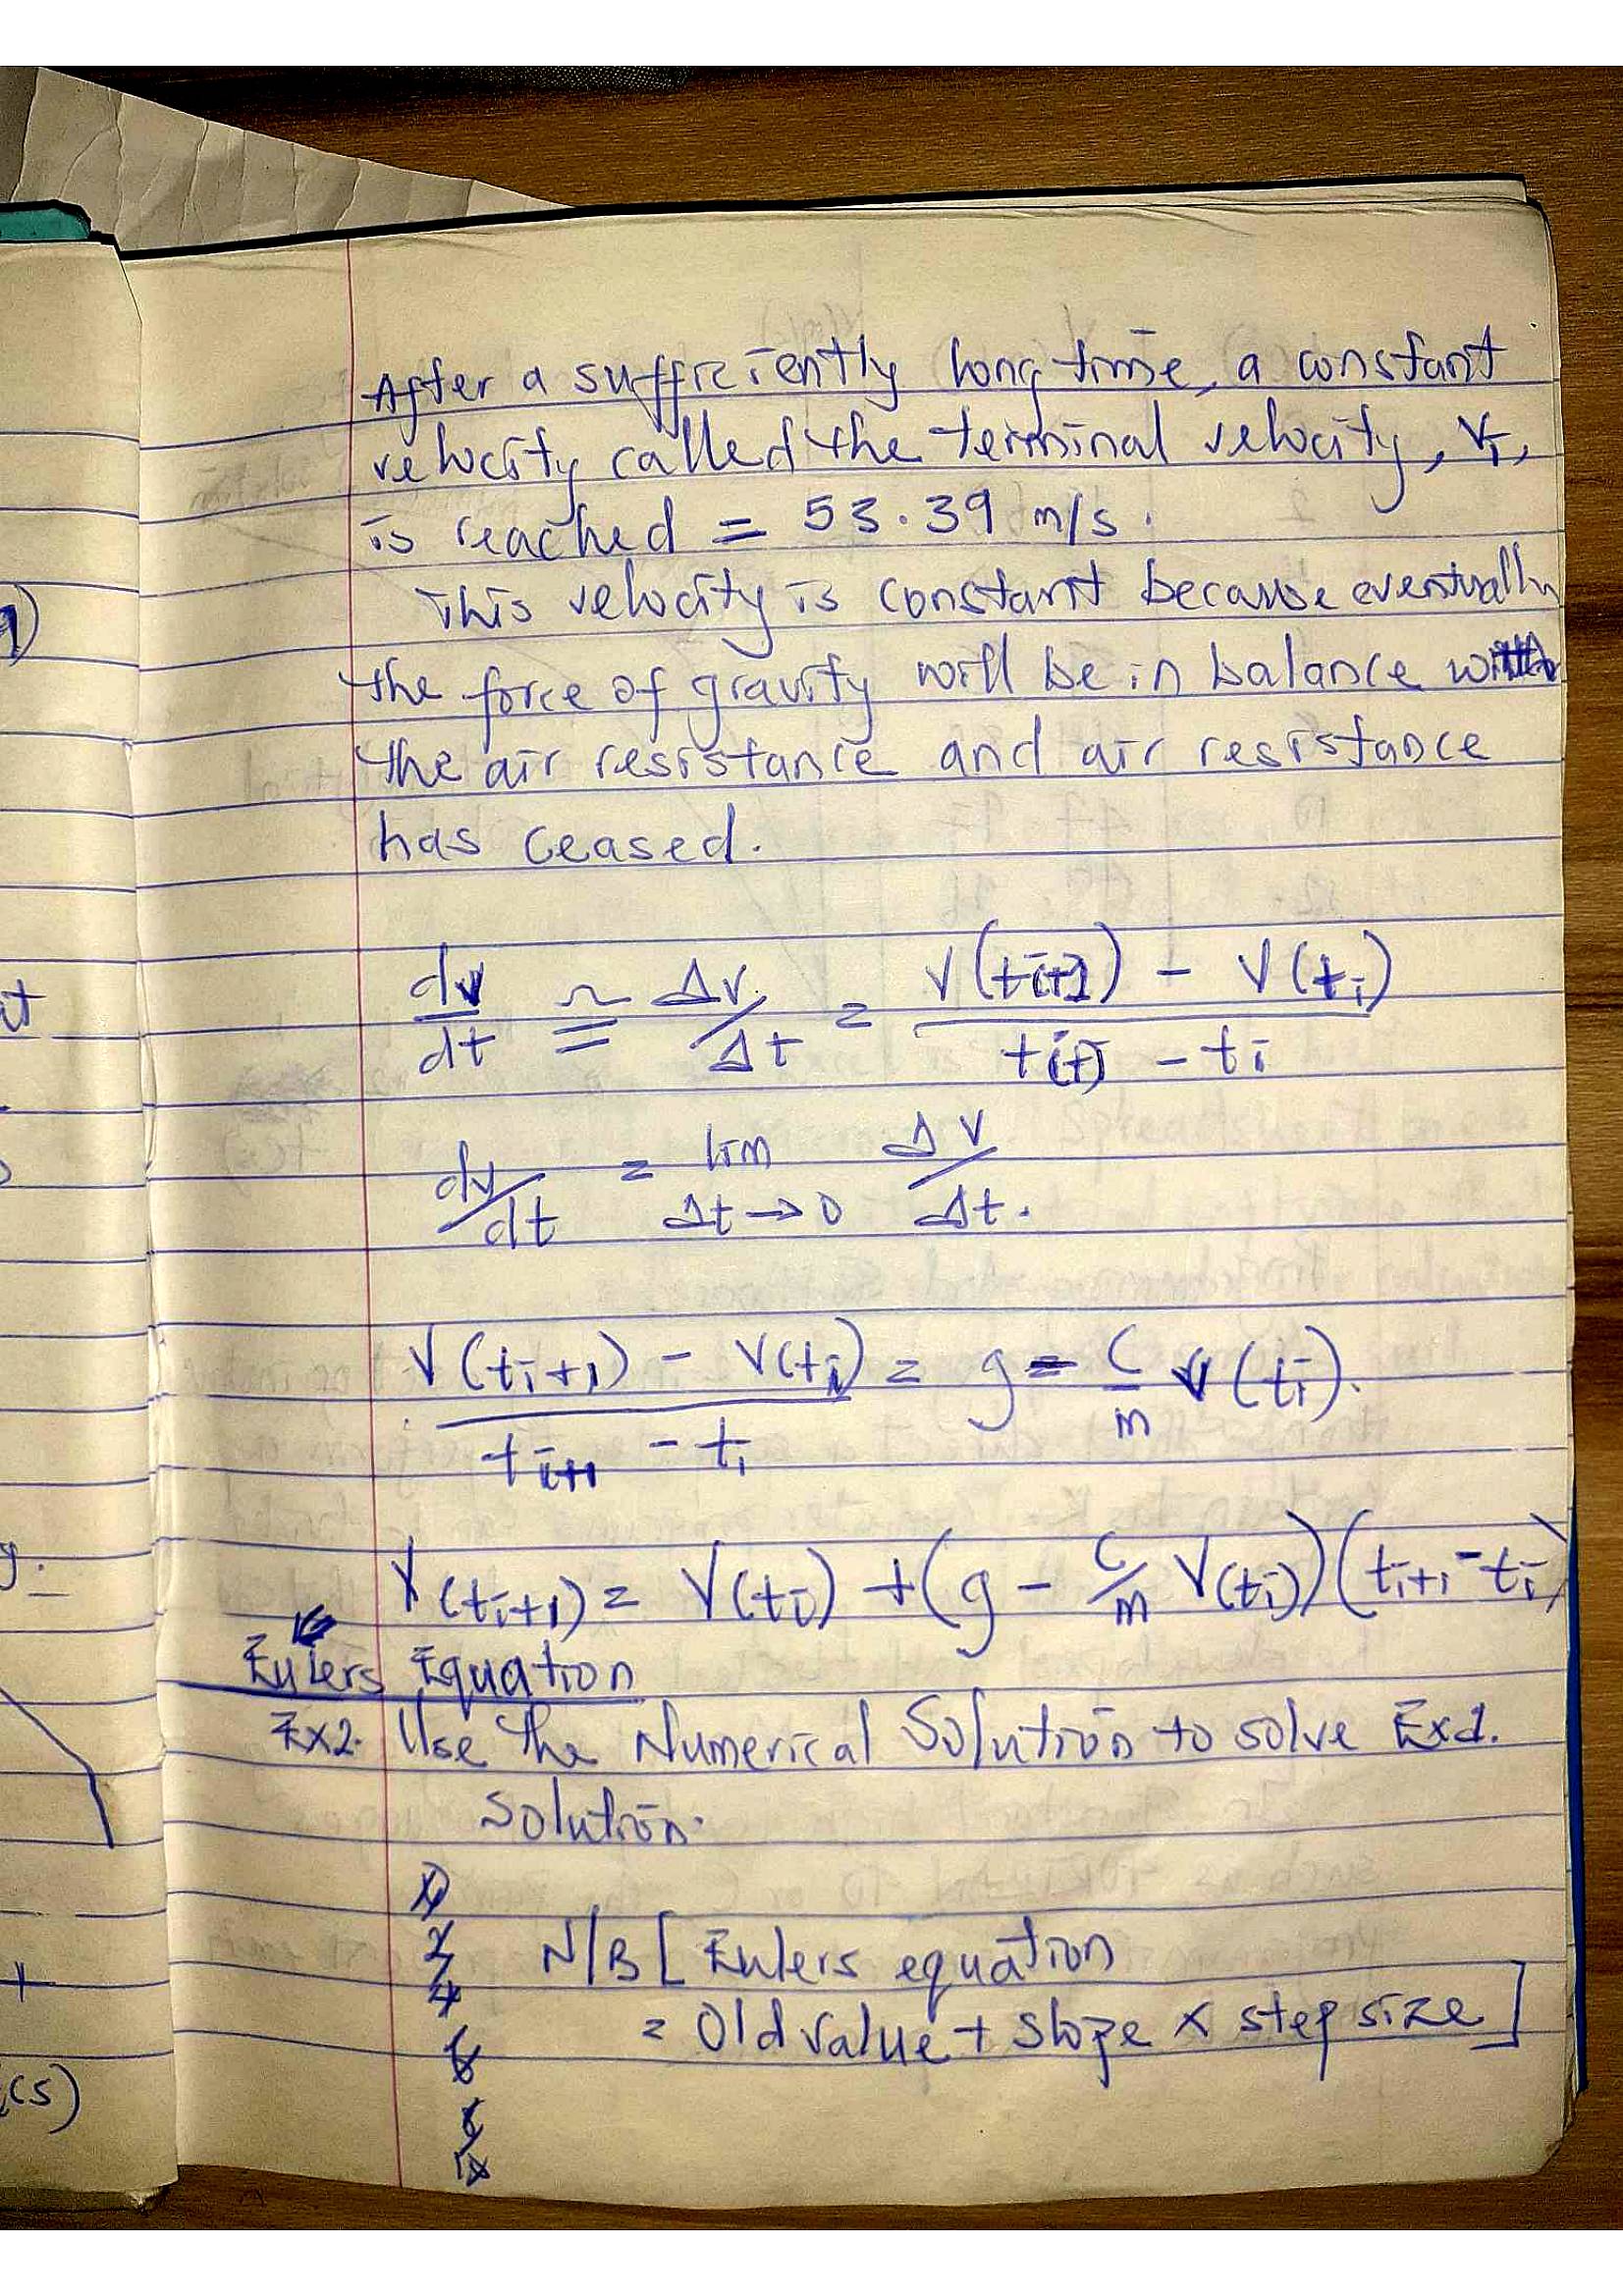 After a sufficiently long time, a constant
velocity called the terminal velocity, V_T,
is reached = 53.39 m/s.
This velocity is constant because eventually
the force of gravity will be in balance with
the air resistance and air resistance
has ceased.
dv/dt ≅ Δv/Δt = (V(ti+1) - V(ti))/(ti+1 - ti)
dv/dt = lim Δt→0 ΔV/Δt.
(V(ti+1) - V(ti))/(ti+1 - ti) = g - C/m V(ti).
V(ti+1) = V(ti) + (g - C/m V(ti))(ti+1 - ti)
Eulers Equation
Ex2. Use the Numerical Solution to solve Ex1.
Solution.
N/B [Eulers equation
= Old value + slope x step size]